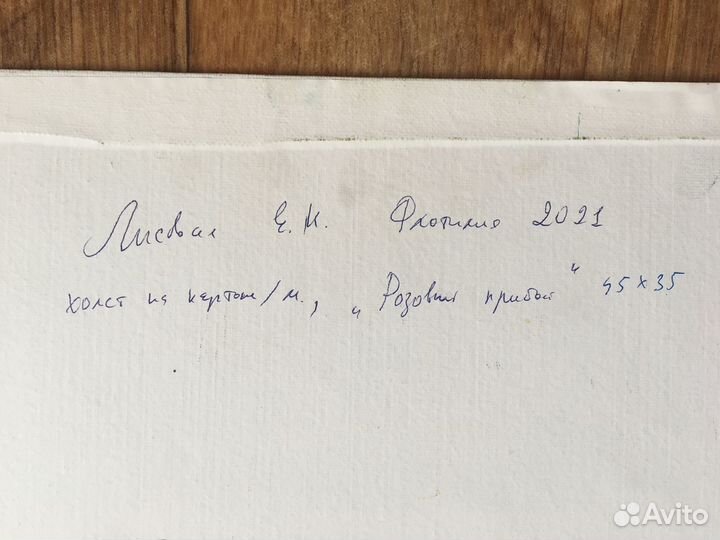 Лисовая Е.Н. Флотилия 2021
холст на картоне/м., „Розовый прибой" 45x35
Avito